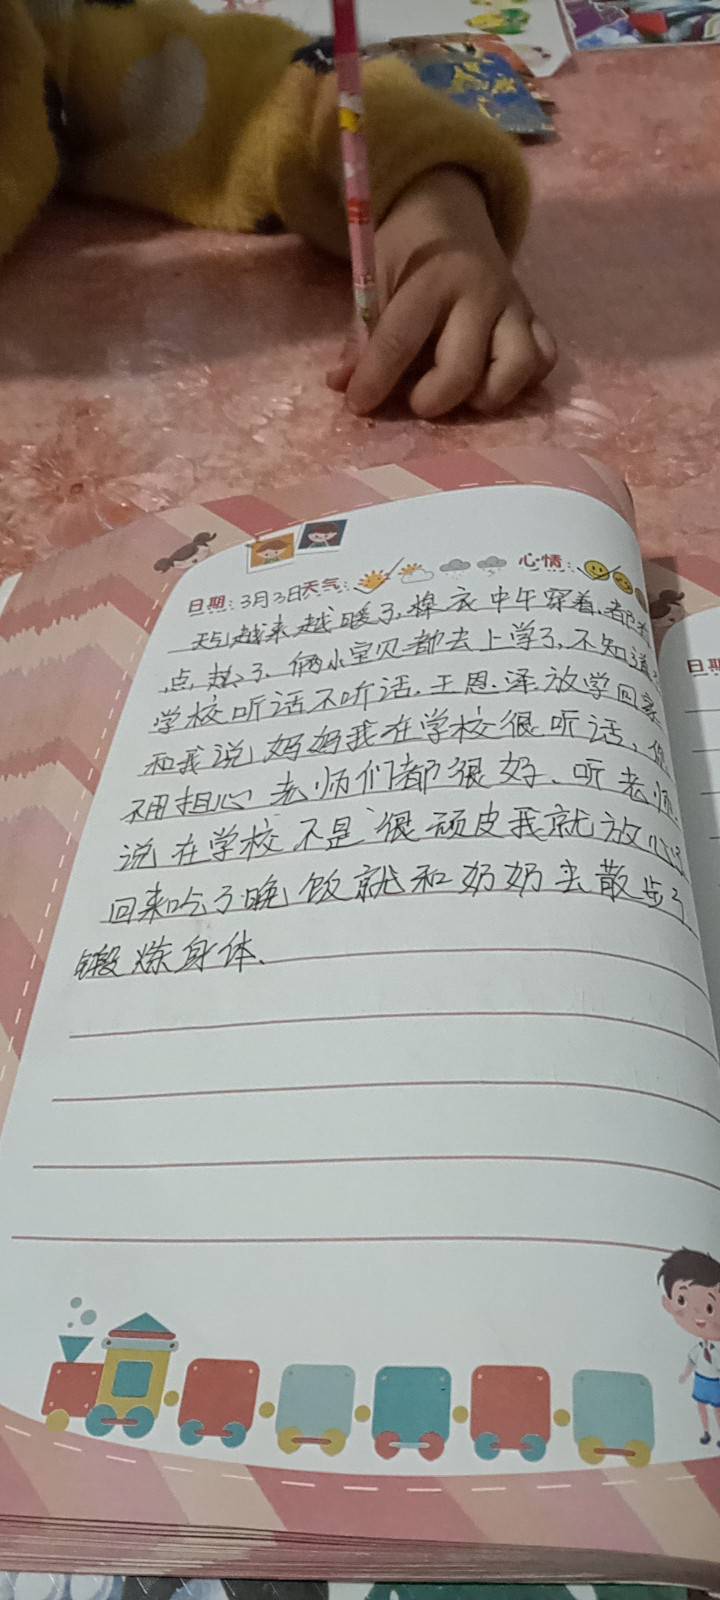 日期：3月3日天气： 心情：
天气越来越暖了,棉衣中午穿着.都有
点,热了.俩小宝贝都去上学了,不知道
学校听话不听话.王恩泽放学回家
和我说,妈妈我在学校很听话,你
不用担心老师们都很好、听老师
说在学校不是很顽皮我就放心了
回来吃了晚饭就和奶奶去散步了
锻炼身体、
日期